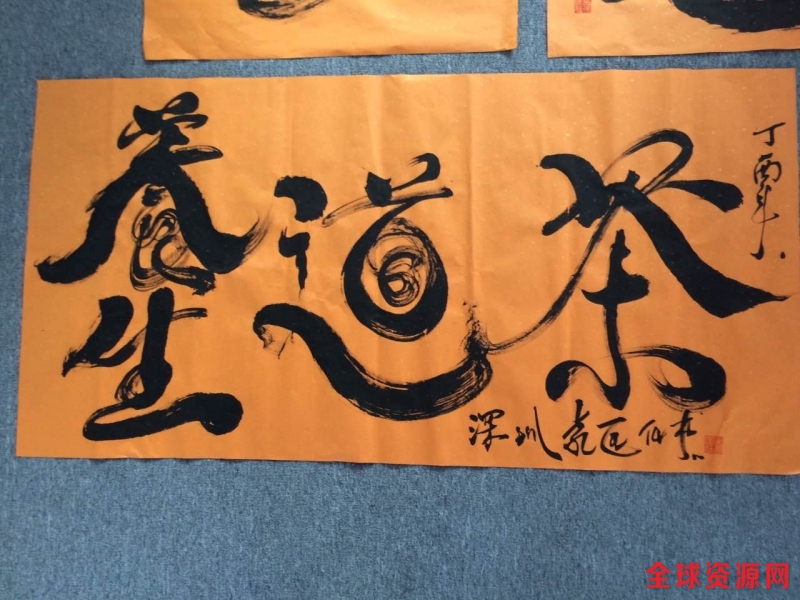 丁酉年
茶道養生
深圳
全球资源网